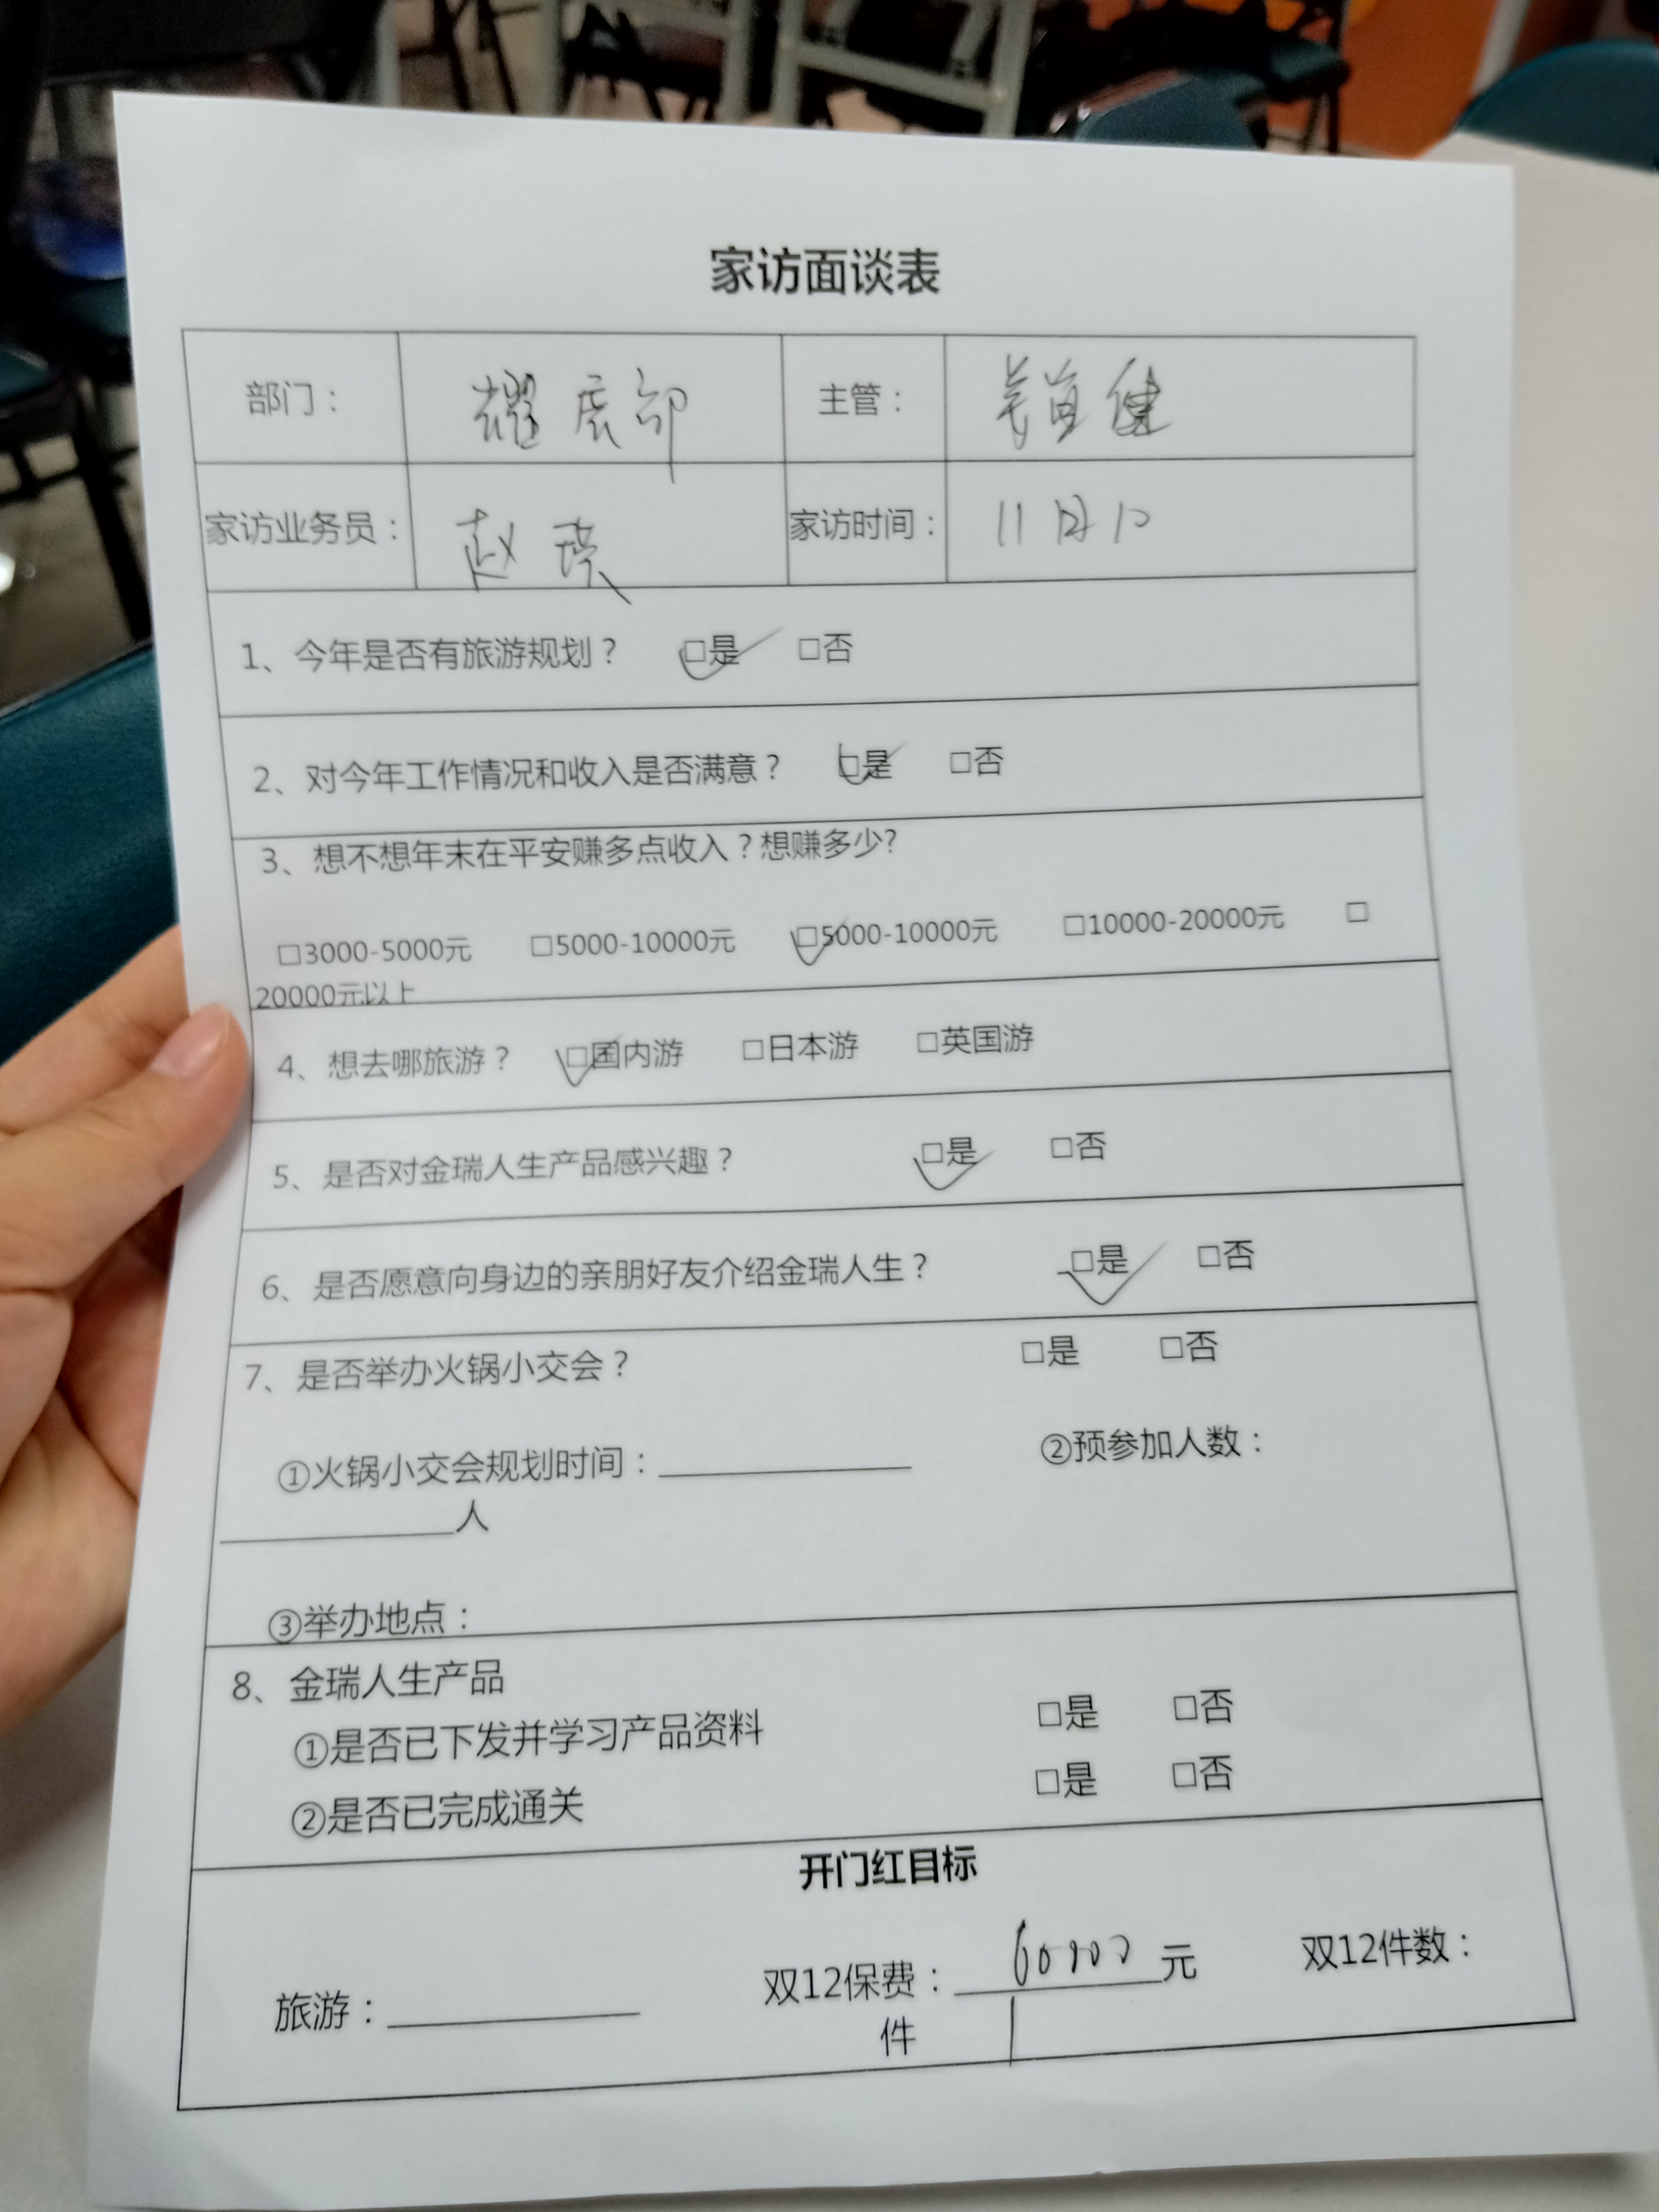 家访面谈表
部门： 耀辰部 主管：
家访业务员： 赵瑛 家访时间： 11月10
1、今年是否有旅游规划？ □是 □否
2、对今年工作情况和收入是否满意？ □是 □否
3、想不想年末在平安赚多点收入？想赚多少?
□3000-5000元 □5000-10000元 □5000-10000元 □10000-20000元 □
20000元以上
4、想去哪旅游？ □国内游 □日本游 □英国游
5、是否对金瑞人生产品感兴趣？ □是 □否
6、是否愿意向身边的亲朋好友介绍金瑞人生？ □是 □否
7、是否举办火锅小交会？ □是 □否
①火锅小交会规划时间： ②预参加人数：
人
③举办地点：
8、金瑞人生产品
①是否已下发并学习产品资料 □是 □否
②是否已完成通关 □是 □否
开门红目标
旅游： 双12保费： 60000 元 双12件数：
件 1